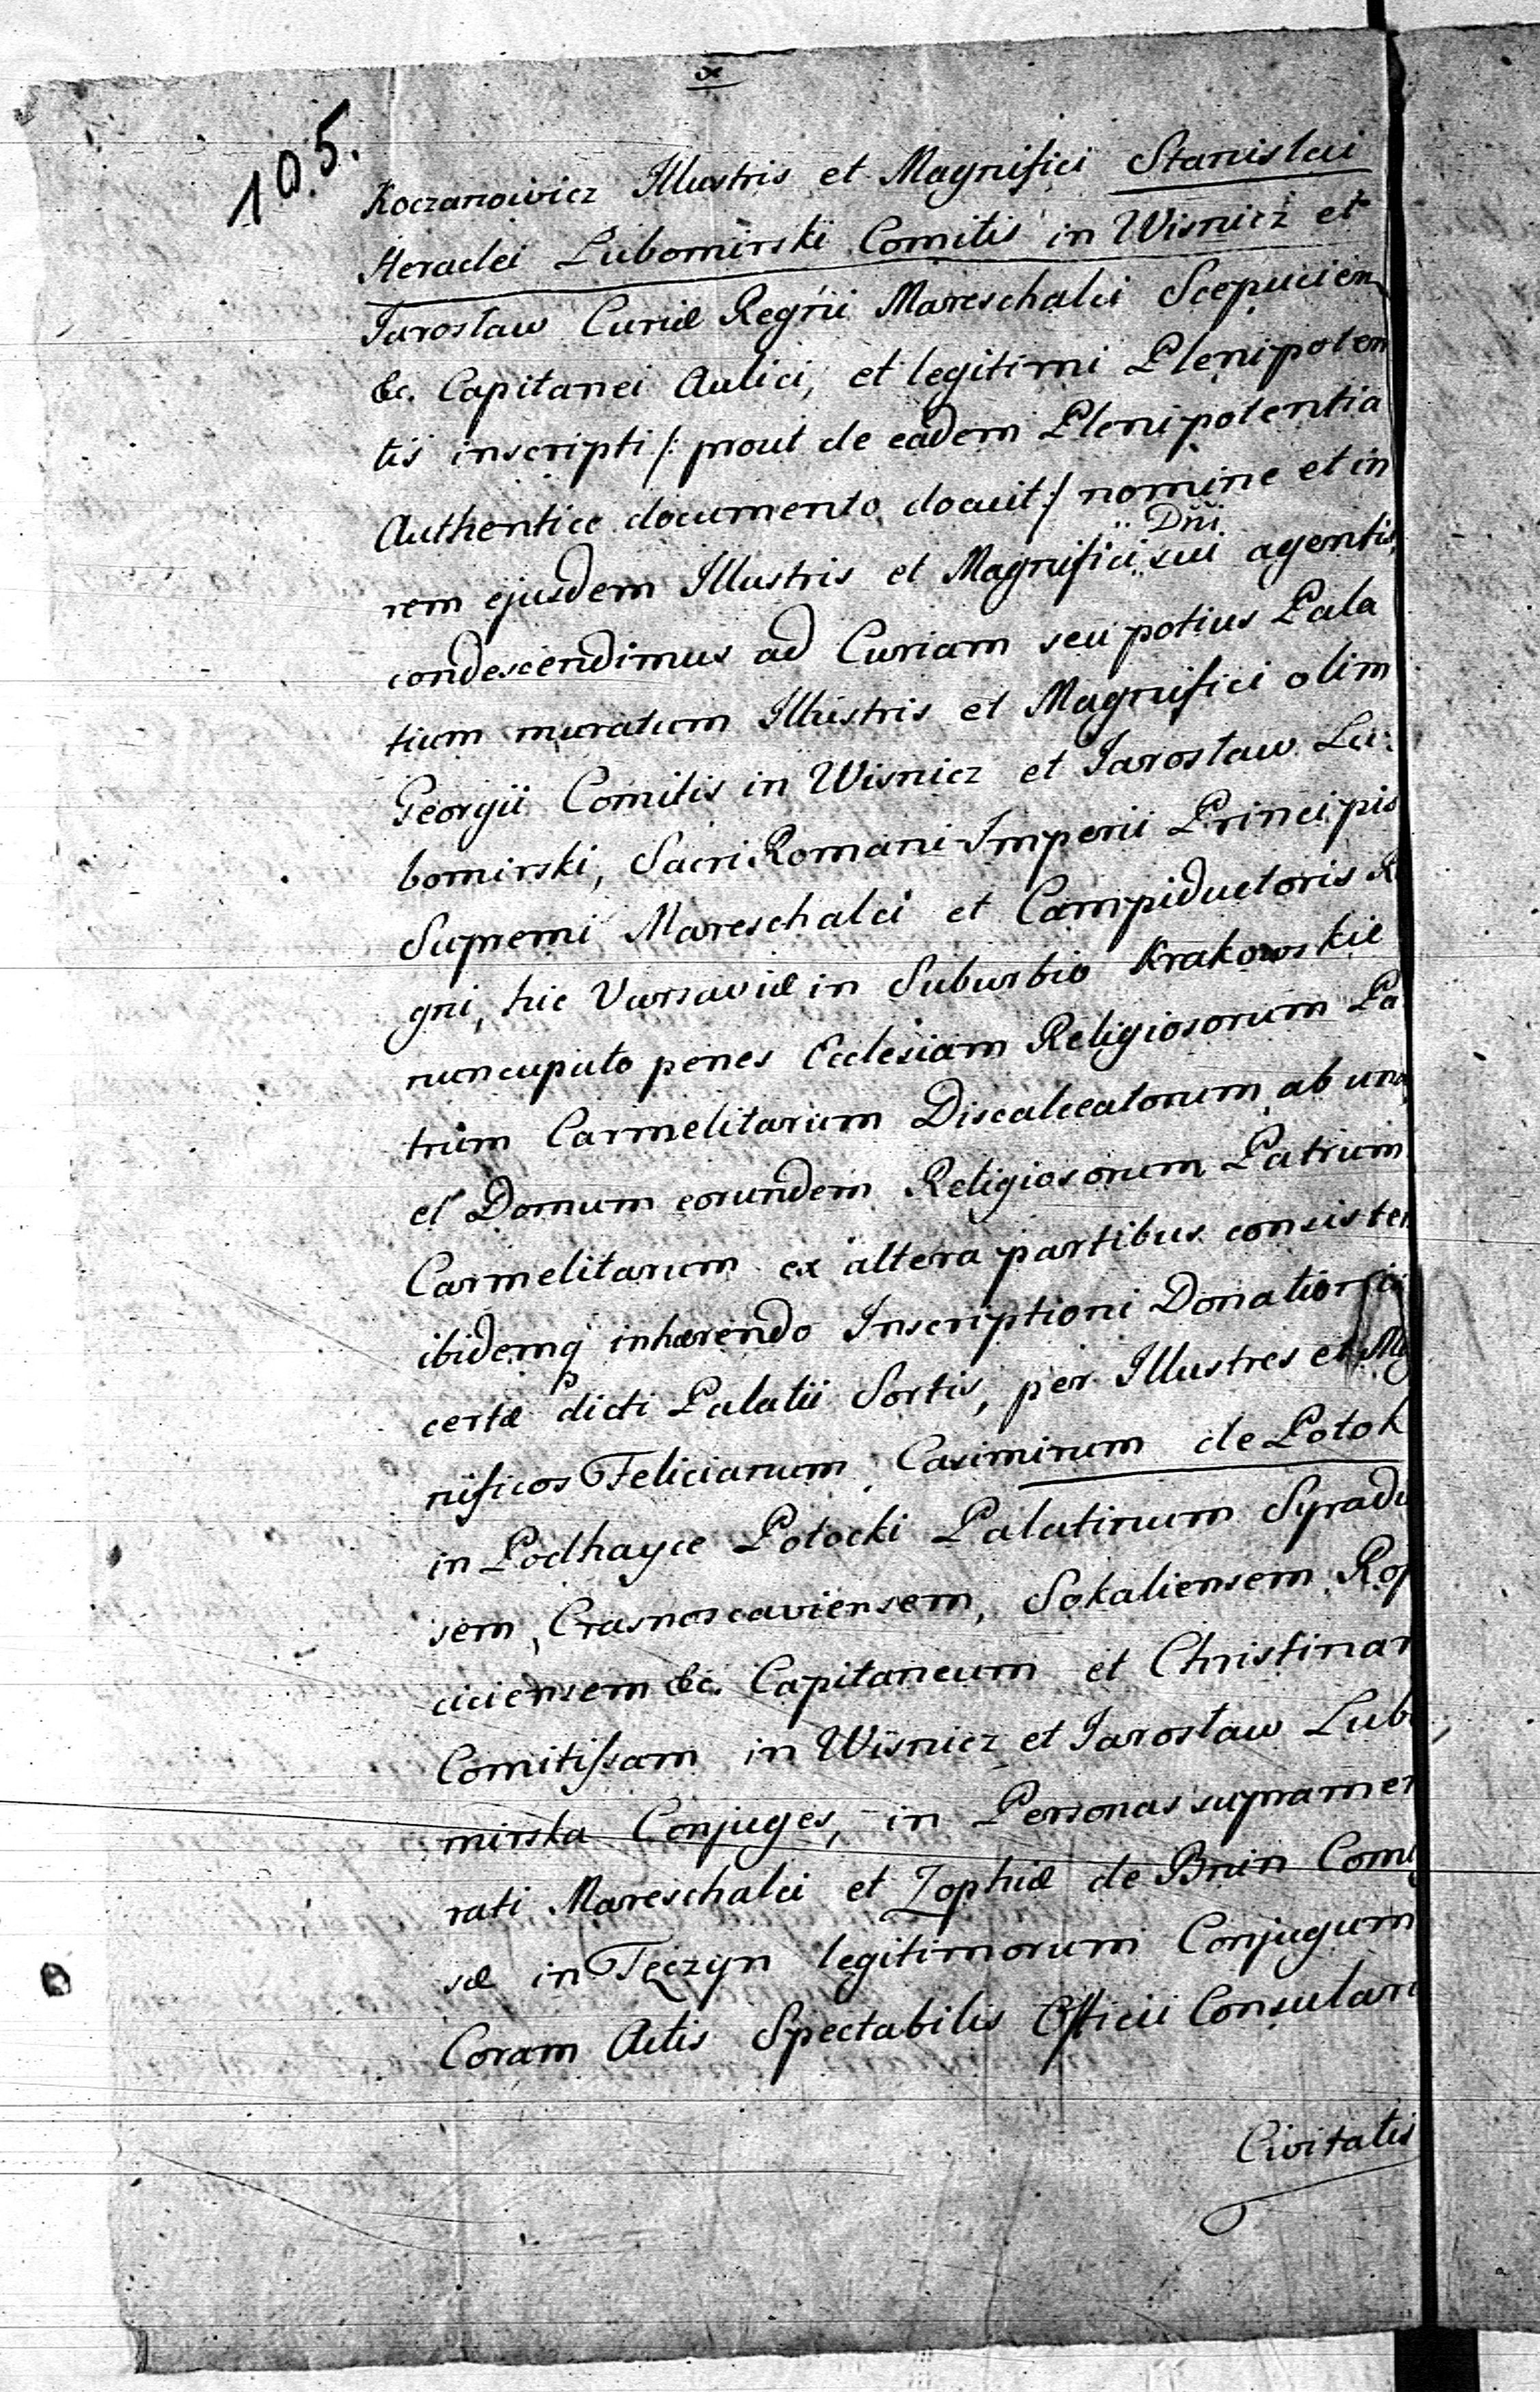 x
105.
Koczanowicz Illustris et Magnifici Stanislai
Heraclei Lubomirski Comitis in Wisnicz et
Jarosław Curiæ Regni Mareschalci Scepucien
&c. Capitanei Aulici, et legitimi Plenipoten
tis inscripti /: prout de eadem Plenipotentia
Authentice documento docuit :/ nomine et in
Dñi
rem ejusdem Illustris et Magnifici sui agentis,
condescendimus ad Curiam seu potius Pala
tium muratum Illustris et Magnifici olim
Georgii Comitis in Wisnicz et Jarosław Lu:
bomirski, Sacri Romani Imperii Principis
Supremi Mareschalci et Campiductoris Re
gni, hic Varsaviæ in Suburbio Krakowskie
nuncupato penes Ecclesiam Religiosorum Pa
trum Carmelitarum Discalceatorum ab una
et Domum eorundem Religiosorum Patrum
Carmelitarum ex altera partibus consisten
ibidemq inhærendo Inscriptioni
certæ pdicti Palatii Sortis, per Illustres et Mag
nificos Felicianum Casimirum de Potok
in Podhayce Potocki Palatinum Syradi
sem, Crasnostaviensem, Sokaliensem Rop
ciciensem &c. Capitaneum et Christinam
Comitissam in Wisnicz et Jarosław Lubo
mirska Conjuges, in Personas supramen
rati Mareschalci et Zophiæ de Bnin Comi
sæ in Tęczyn legitimorum Conjugum
Coram Actis Spectabilis Officii Consulari
Civitatis